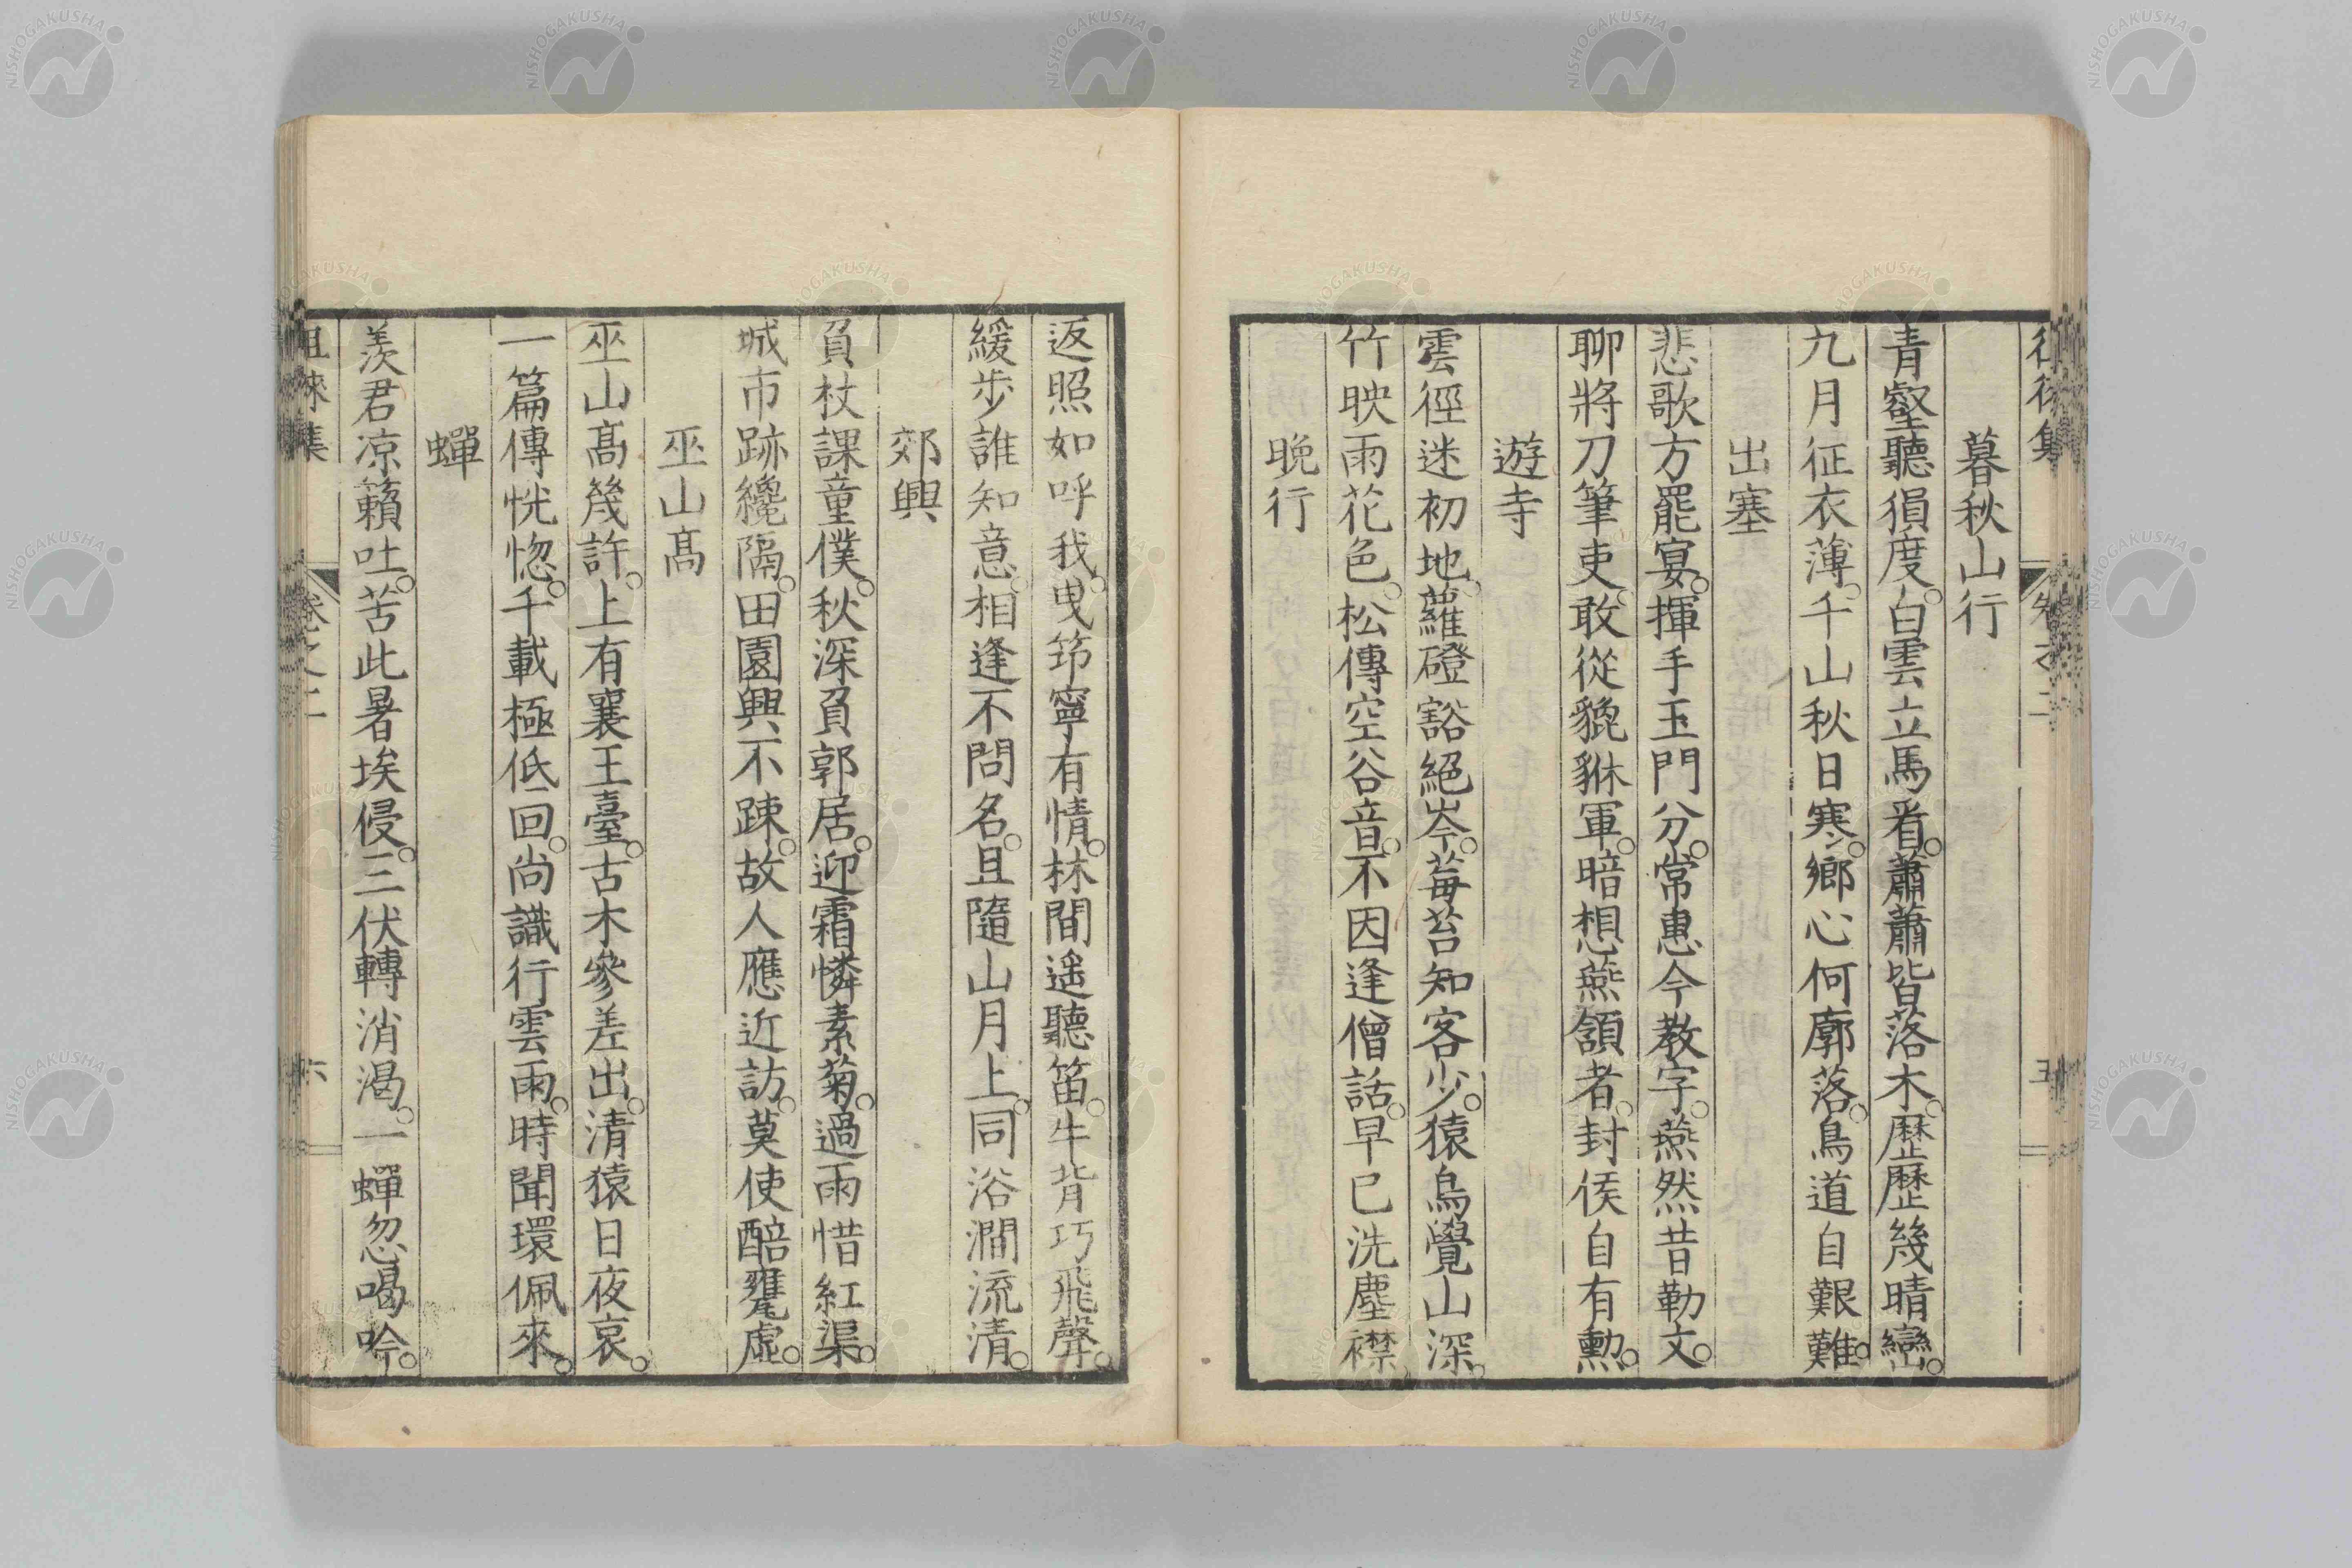 暮秋山行
青壑聽猿度○白雲立馬看○蕭蕭皆落木○歷歷幾晴巒○
九月征衣薄○千山秋日寒○鄉心何廓落○鳥道自艱難○
出塞
悲歌方罷宴○揮手玉門分○常惠今教字○燕然昔勒文○
聊將刀筆吏○敢從貔貅軍○暗想燕頷者○封侯自有勲○
遊寺
雲徑迷初地○蘿磴豁絕岑○莓苔知客少○猿鳥覺山深○
竹映雨花色○松傳空谷音○不因逢僧話○早已洗塵襟
晚行
返照如呼我○曳筇寧有情○林間遥聽笛○牛背巧飛聲○
緩步誰知意○相逢不問名○且隨山月上○同浴澗流清○
郊興
負杖課童僕○秋深負郭居○迎霜憐素菊○過雨惜紅渠○
城市跡纔隔○田園興不踈○故人應近訪○莫使醅甕虛○
巫山髙
巫山髙幾許○上有襄王臺○古木參差出○清猿日夜哀○
一篇傳恍惚○千載極低回○尚識行雲雨○時聞環佩來○
蟬
羨君凉籟吐○苦此暑埃侵○三伏轉消渴○一蟬忽喝吟○
徂徠集 卷之二 六
NISHOGAKUSHA